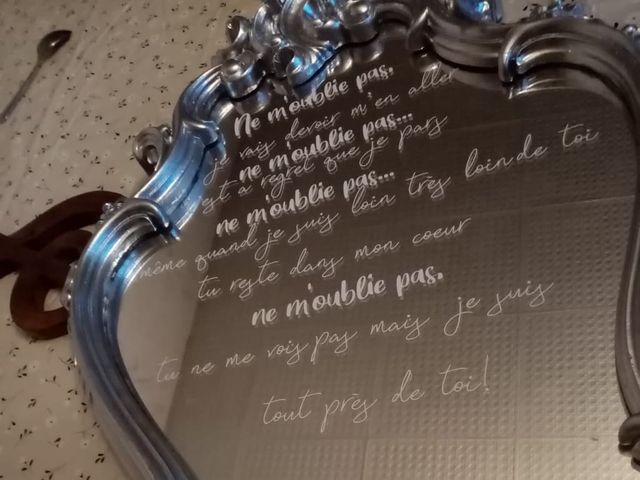 Ne m'oublie pas,
je vais devoir m'en aller
ne m'oublie pas...
est à regret que je pars
ne m'oublie pas...
même quand je suis loin très loin de toi
tu reste dans mon coeur
ne m'oublie pas,
tu ne me vois pas mais je suis
tout près de toi!